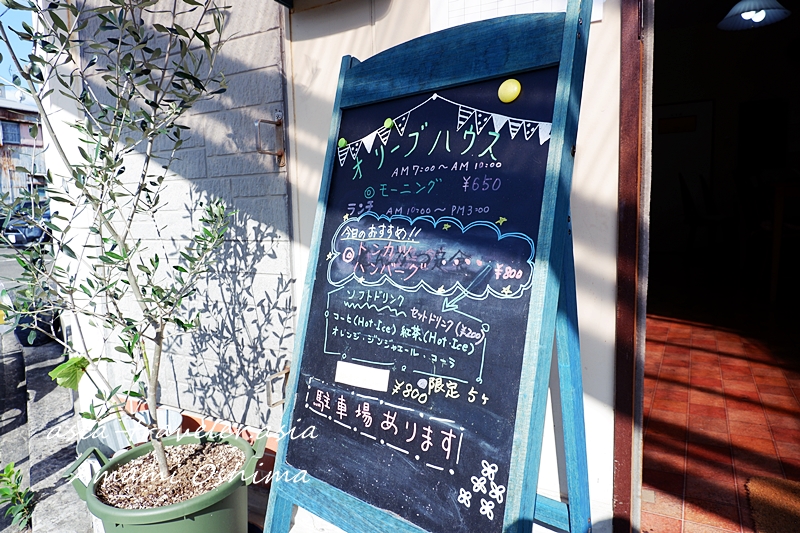 オリーブハウス
AM 7:00〜AM 10:00
◎モーニング ¥650
ランチ AM 10:00〜PM 3:00
今日のおすすめ!!
◎トンカツ
ハンバーグ ¥800
ソフトドリンク
セットドリンク(¥200)
コーヒ(Hot・Ice) 紅茶(Hot・Ice)
オレンジ・ジンジャエール・コーラ
¥800 限定5ヶ
!駐車場あります!
asia-travel in asia
Amami Oshima